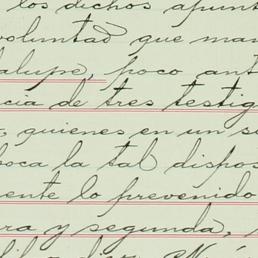 los dichos apunt
voluntad que man
alupe, poco ant
cia de tres testig
, quienes en un s
boca la tal dispos
ente lo prevenido
ra y segunda,